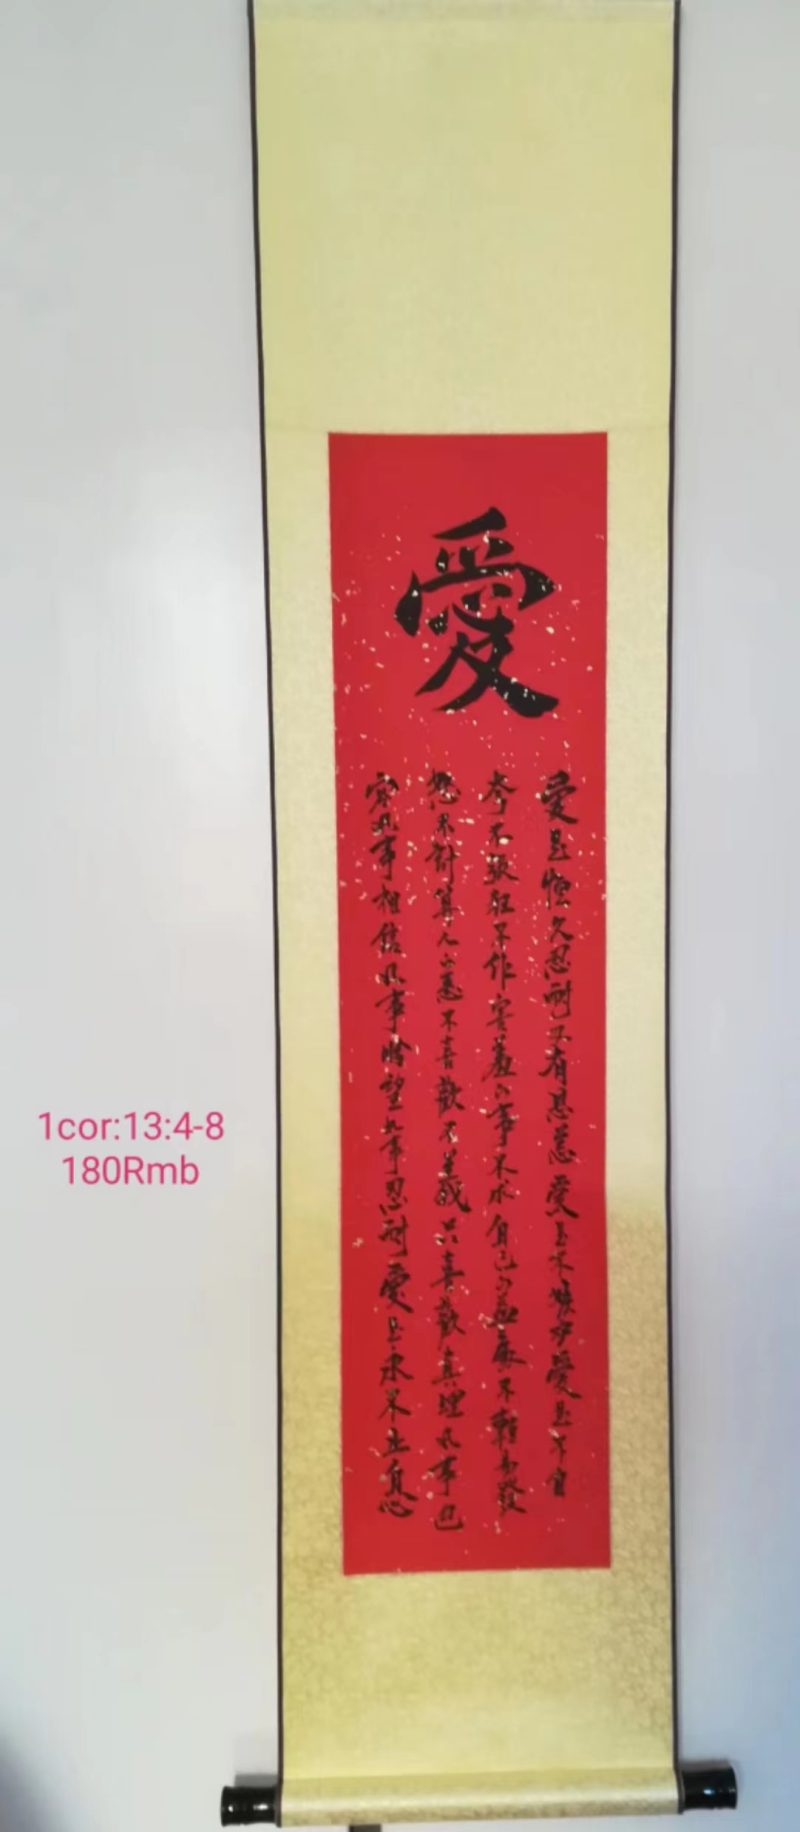 愛
愛是恒久忍耐又有恩慈愛是不嫉妒愛是不自
夸不張狂不作害羞的事不求自己的益處不輕易發
怒不計算人的惡不喜歡不義只喜歡真理凡事包
容凡事相信凡事盼望凡事忍耐愛是永不止息
1cor:13:4-8
180Rmb